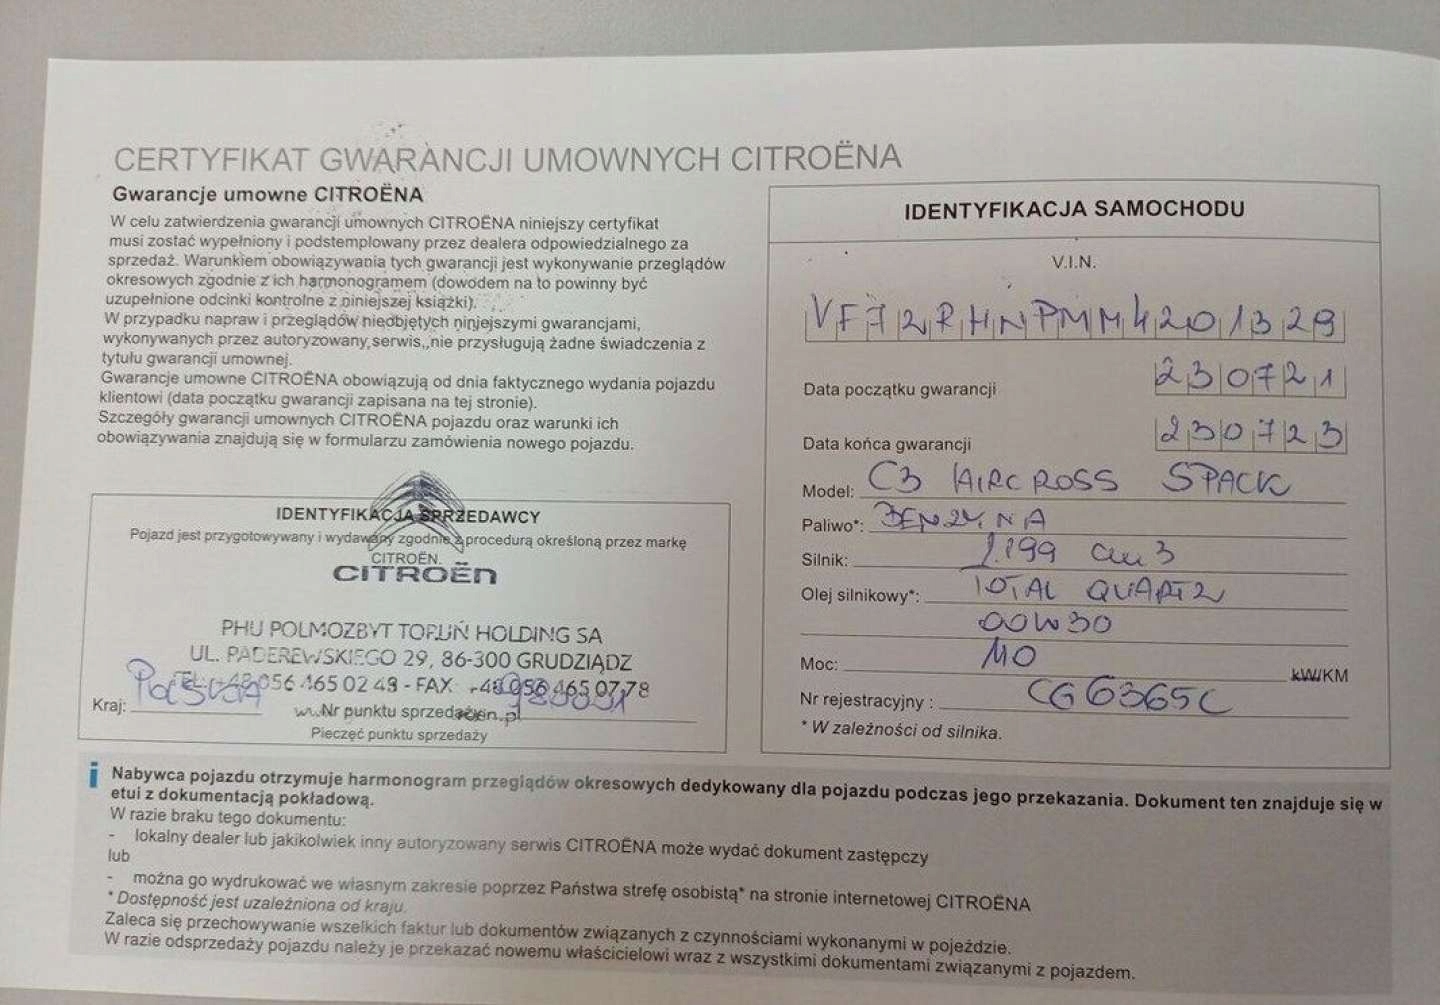 CERTYFIKAT GWARANCJI UMOWNYCH CITROËNA
Gwarancje umowne CITROËNA
W celu zatwierdzenia gwarancji umownych CITROËNA niniejszy certyfikat
musi zostać wypełniony i podstemplowany przez dealera odpowiedzialnego za
sprzedaż. Warunkiem obowiązywania tych gwarancji jest wykonywanie przeglądów
okresowych zgodnie z ich harmonogramem (dowodem na to powinny być
uzupełnione odcinki kontrolne z niniejszej książki).
W przypadku napraw i przeglądów nieobjętych niniejszymi gwarancjami,
wykonywanych przez autoryzowany serwis, nie przysługują żadne świadczenia z
tytułu gwarancji umownej.
Gwarancje umowne CITROËNA obowiązują od dnia faktycznego wydania pojazdu
klientowi (data początku gwarancji zapisana na tej stronie).
Szczegóły gwarancji umownych CITROËNA pojazdu oraz warunki ich
obowiązywania znajdują się w formularzu zamówienia nowego pojazdu.
IDENTYFIKACJA SPRZEDAWCY
Pojazd jest przygotowywany i wydawany zgodnie z procedurą określoną przez markę
CITROËN.
CITROËN
PHU POLMOZBYT TORUŃ HOLDING SA
UL. PADEREWSKIEGO 29, 86-300 GRUDZIĄDZ
TEL. +48 056 465 02 49 - FAX +48 056 465 07 78
Kraj: Polska
Nr punktu sprzedaży
Pieczęć punktu sprzedaży
IDENTYFIKACJA SAMOCHODU
V.I.N.
VF72RHNPMM4201329
Data początku gwarancji 230721
Data końca gwarancji 230723
Model: C3 AIRCROSS SPACK
Paliwo*: BENZYNA
Silnik: 1.199 cm3
Olej silnikowy*: TOTAL QUARTZ
00W30
Moc: 110 kW/KM
Nr rejestracyjny : CG6365C
* W zależności od silnika.
i Nabywca pojazdu otrzymuje harmonogram przeglądów okresowych dedykowany dla pojazdu podczas jego przekazania. Dokument ten znajduje się w
etui z dokumentacją pokładową.
W razie braku tego dokumentu:
- lokalny dealer lub jakikolwiek inny autoryzowany serwis CITROËNA może wydać dokument zastępczy
lub
- można go wydrukować we własnym zakresie poprzez Państwa strefę osobistą* na stronie internetowej CITROËNA
* Dostępność jest uzależniona od kraju.
Zaleca się przechowywanie wszelkich faktur lub dokumentów związanych z czynnościami wykonanymi w pojeździe.
W razie odsprzedaży pojazdu należy je przekazać nowemu właścicielowi wraz z wszystkimi dokumentami związanymi z pojazdem.